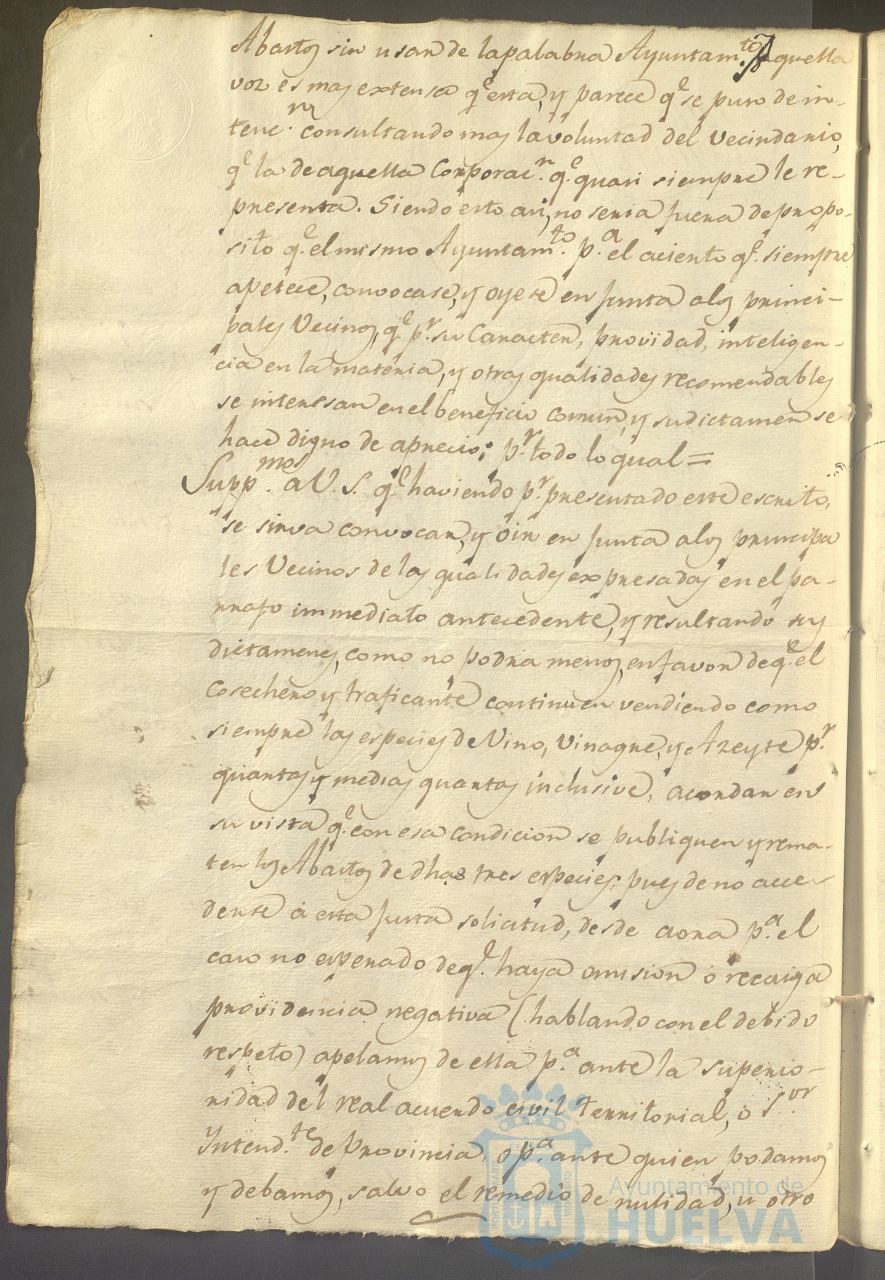 Abastos sin usar de la palabra Ayuntam.to aquella
voz es mas extensa q.e esta, y parece q.e se puso de in-
tenc.n consultando mas la voluntad del Vecindario,
q.e la de aquella Corporac.n q.e quasi siempre le re-
presenta. Siendo esto asi, no seria fuera de propo-
sito q.e el mismo Ayuntam.to p.a el aciento q.e siempre
apetece, convocase, y oyese en Junta a los princi-
pales Vecinos, q.e p.r su Caracter, providad, inteligen-
cia en la materia, y otras qualidades recomendables
se interesan en el beneficio comun, y su dictamen se
hace digno de aprecio; p.r todo lo qual =
Supp.mos a V. S. q.e haviendo p.r presentado este escrito,
se sirva convocar, y oir en Junta a los principa
les Vecinos de las qualidades expresadas en el pa-
rrafo immediato antecedente, y resultando sus
dictamenes, como no podra menos, en favor de q.e el
Cosechero y traficante continuen vendiendo como
siempre las especies de Vino, Vinagre, y Azeyte p.r
quartas y medias quartas inclusive, acordar en
su vista q.e con esa condicion se publiquen y rema-
ten los Abastos de dhas tres especies: pues de no acce-
dente à esta justa solicitud, desde aora p.a el
caso no esperado de q.e haya omision ò recaiga
providencia negativa (hablando con el debido
respeto) apelamos de ella p.a ante la superio-
ridad del real acuerdo civil territorial, ò S.or
Intend.te de Provincia, o p.a ante quien podamos
y debamos, salvo el remedio de nulidad, u otro
Ayuntamiento de
HUELVA